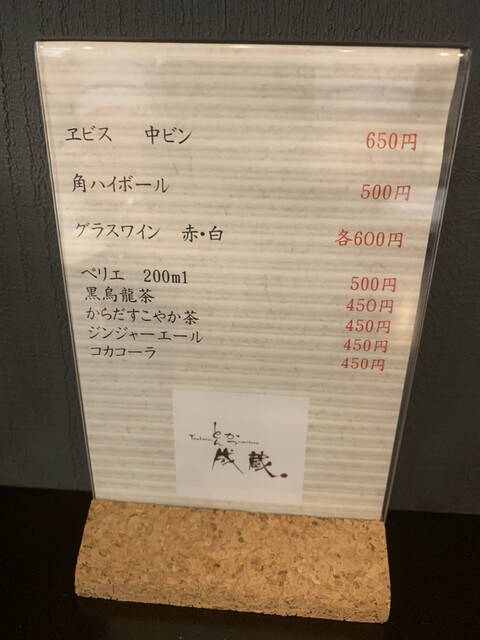 ヱビス 中ビン 650円
角ハイボール 500円
グラスワイン 赤・白 各600円
ペリエ 200ml 500円
黒烏龍茶 450円
からだすこやか茶 450円
ジンジャーエール 450円
コカコーラ 450円
とんかつ
成蔵